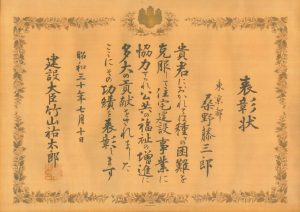 表彰状
東京都
桑野藤三郎
貴君におかれては種々の困難を
克服して住宅建設事業に
協力され公共の福祉の増進に
多大の貢献をされました
ここにその功績を表彰します
昭和三十年七月十日
建設大臣竹山祐太郎